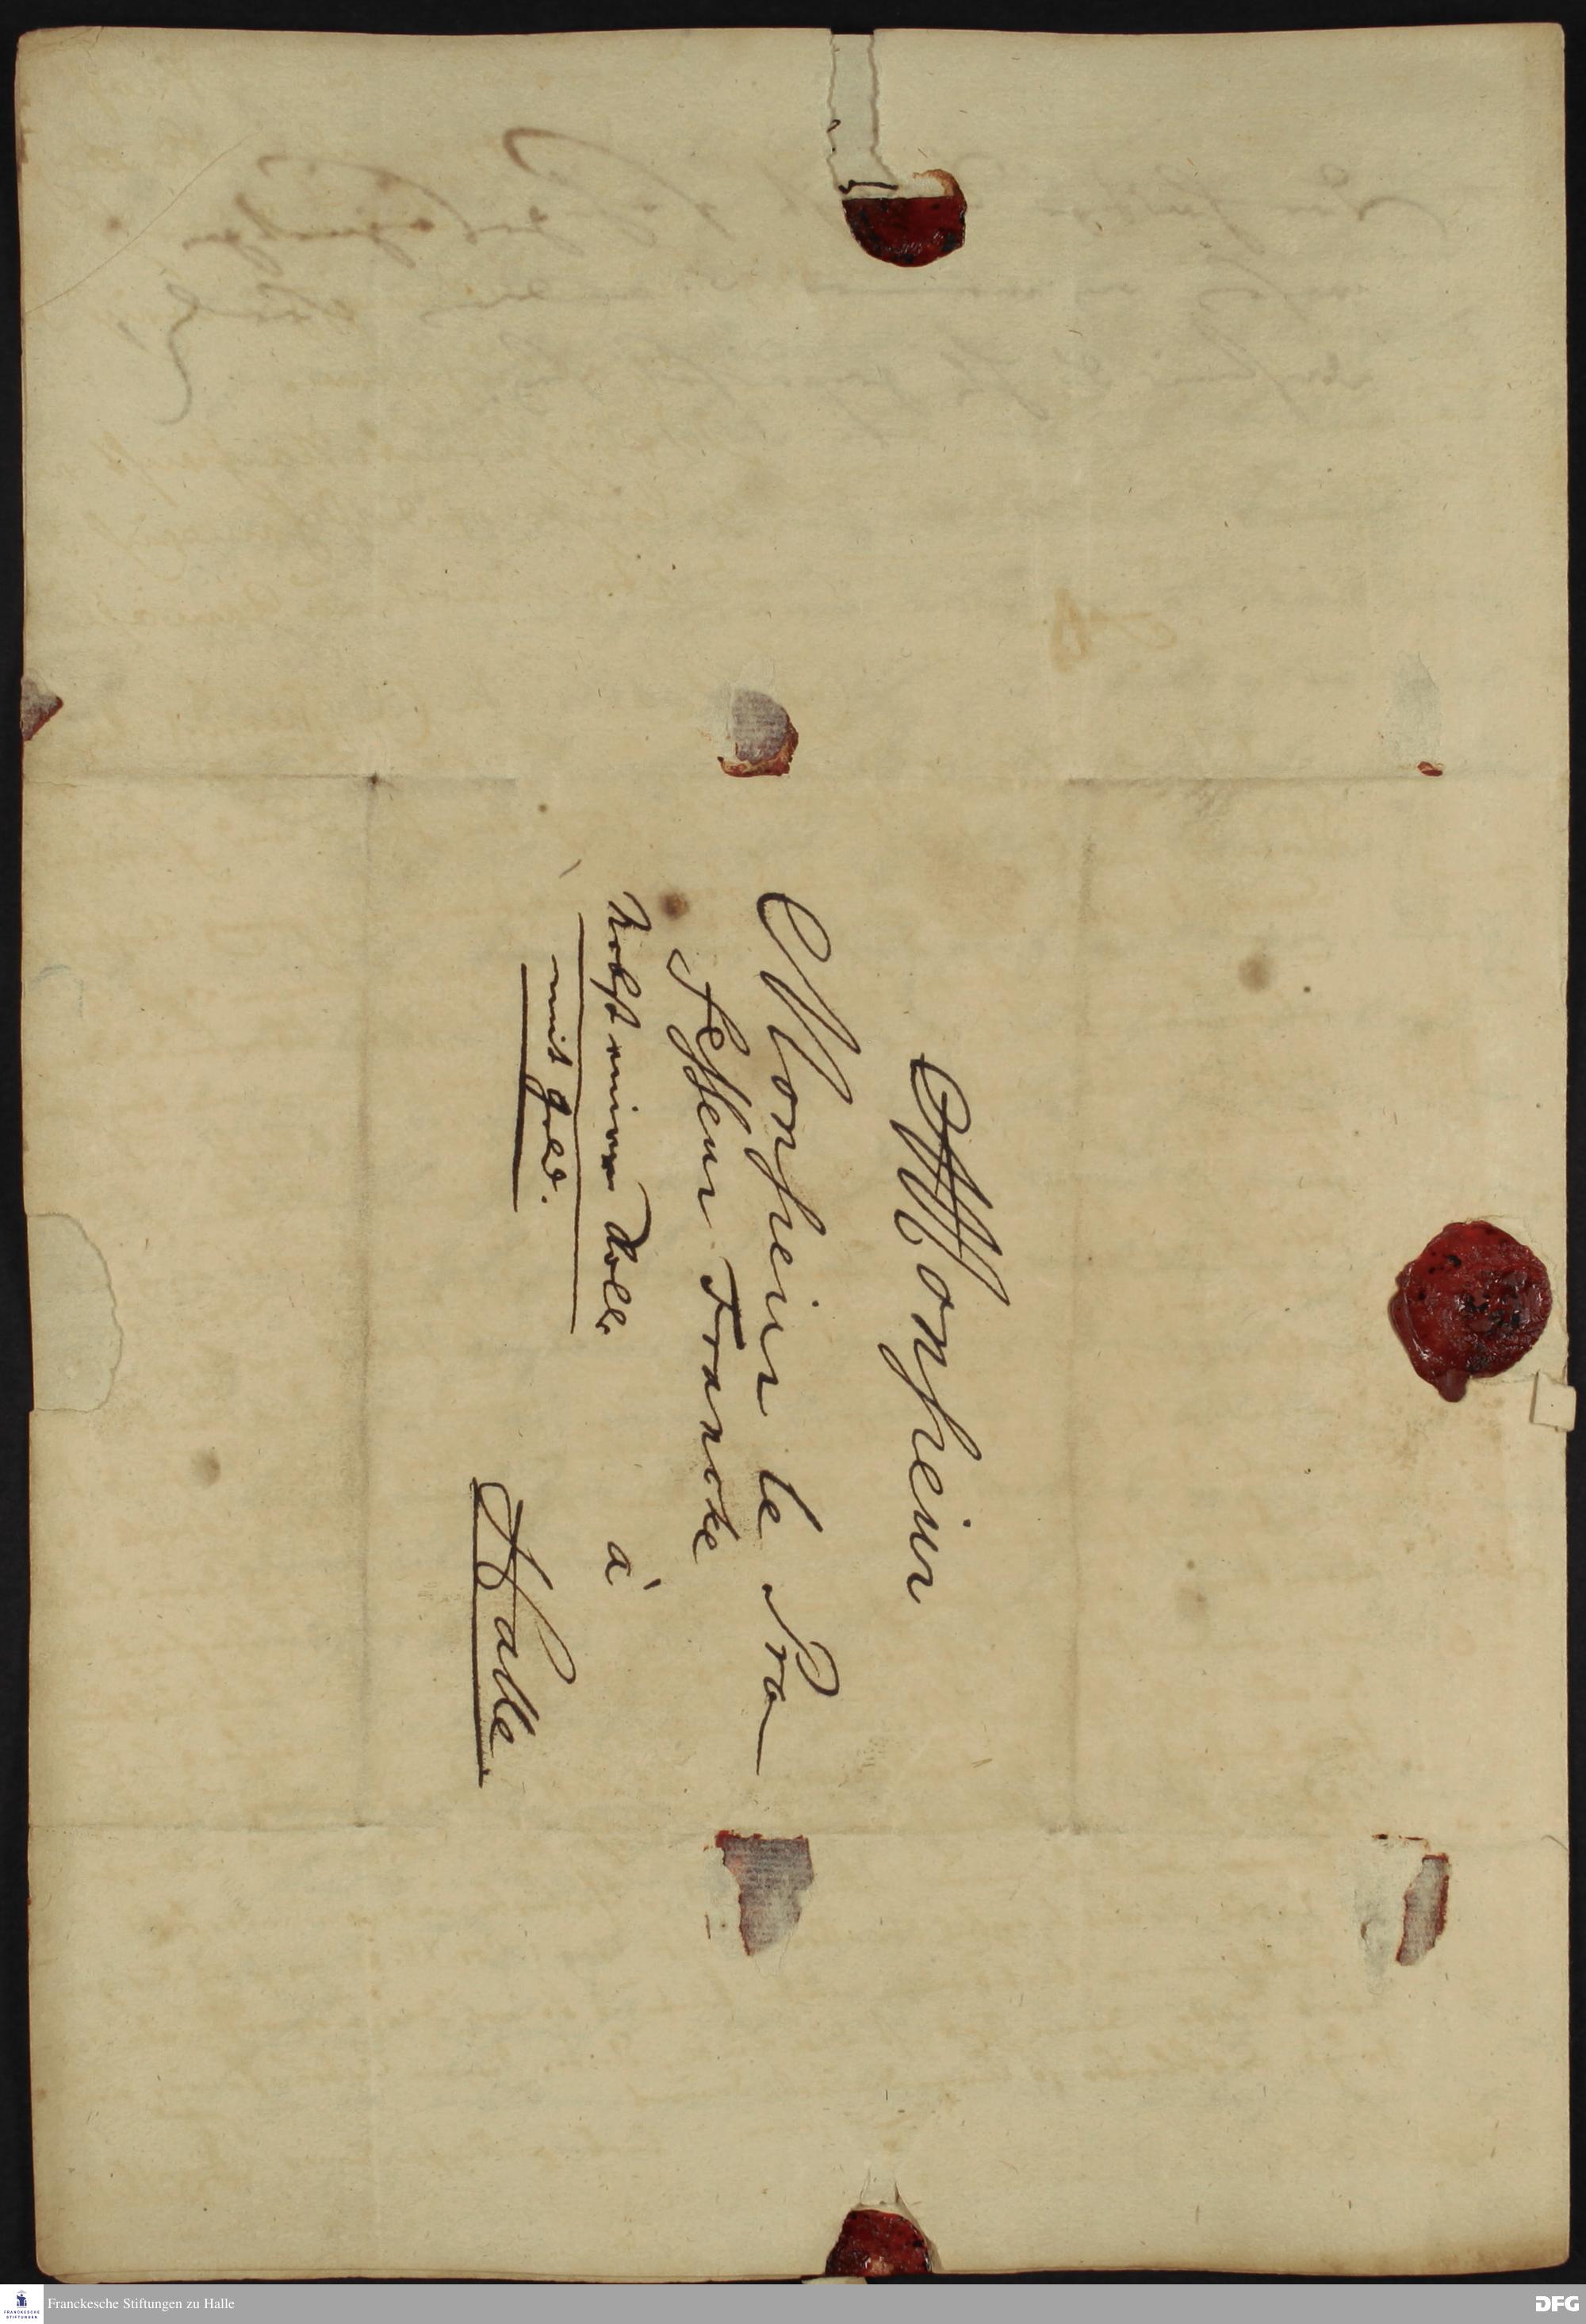 A Monsieur
Monsieur le Pro-
fesseur Francke
nebst einer Rolle
mit geld.
à
Halle.
Franckesche Stiftungen zu Halle
FRANCKESCHE
STIFTUNGEN
DFG